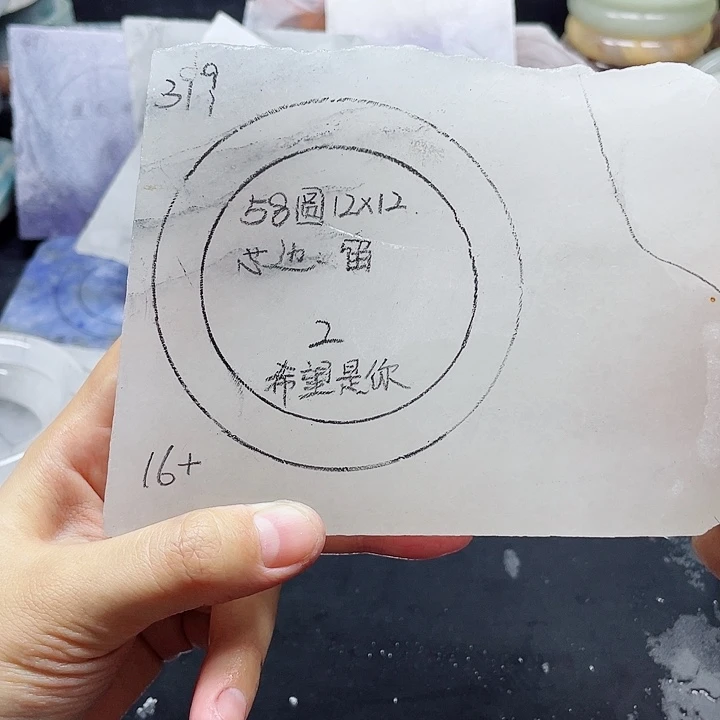 399
58圆12×12.
芯边. 留
2
希望是你
16+